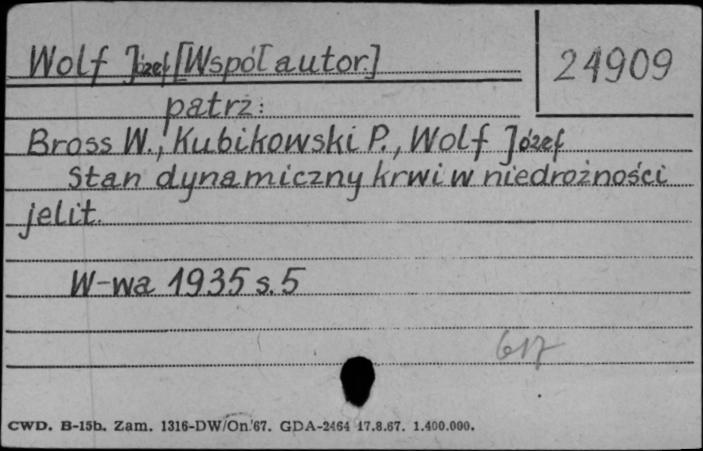 Wolf Józef [Współautor]
24909
patrz:
Bross W., Kubikowski P., Wolf Józef
Stan dynamiczny krwi w niedrożności
jelit.
W-wa 1935 s. 5
617
CWD. B-15b. Zam. 1316-DW/On/67. GDA-2464 17.8.67. 1.400.000.